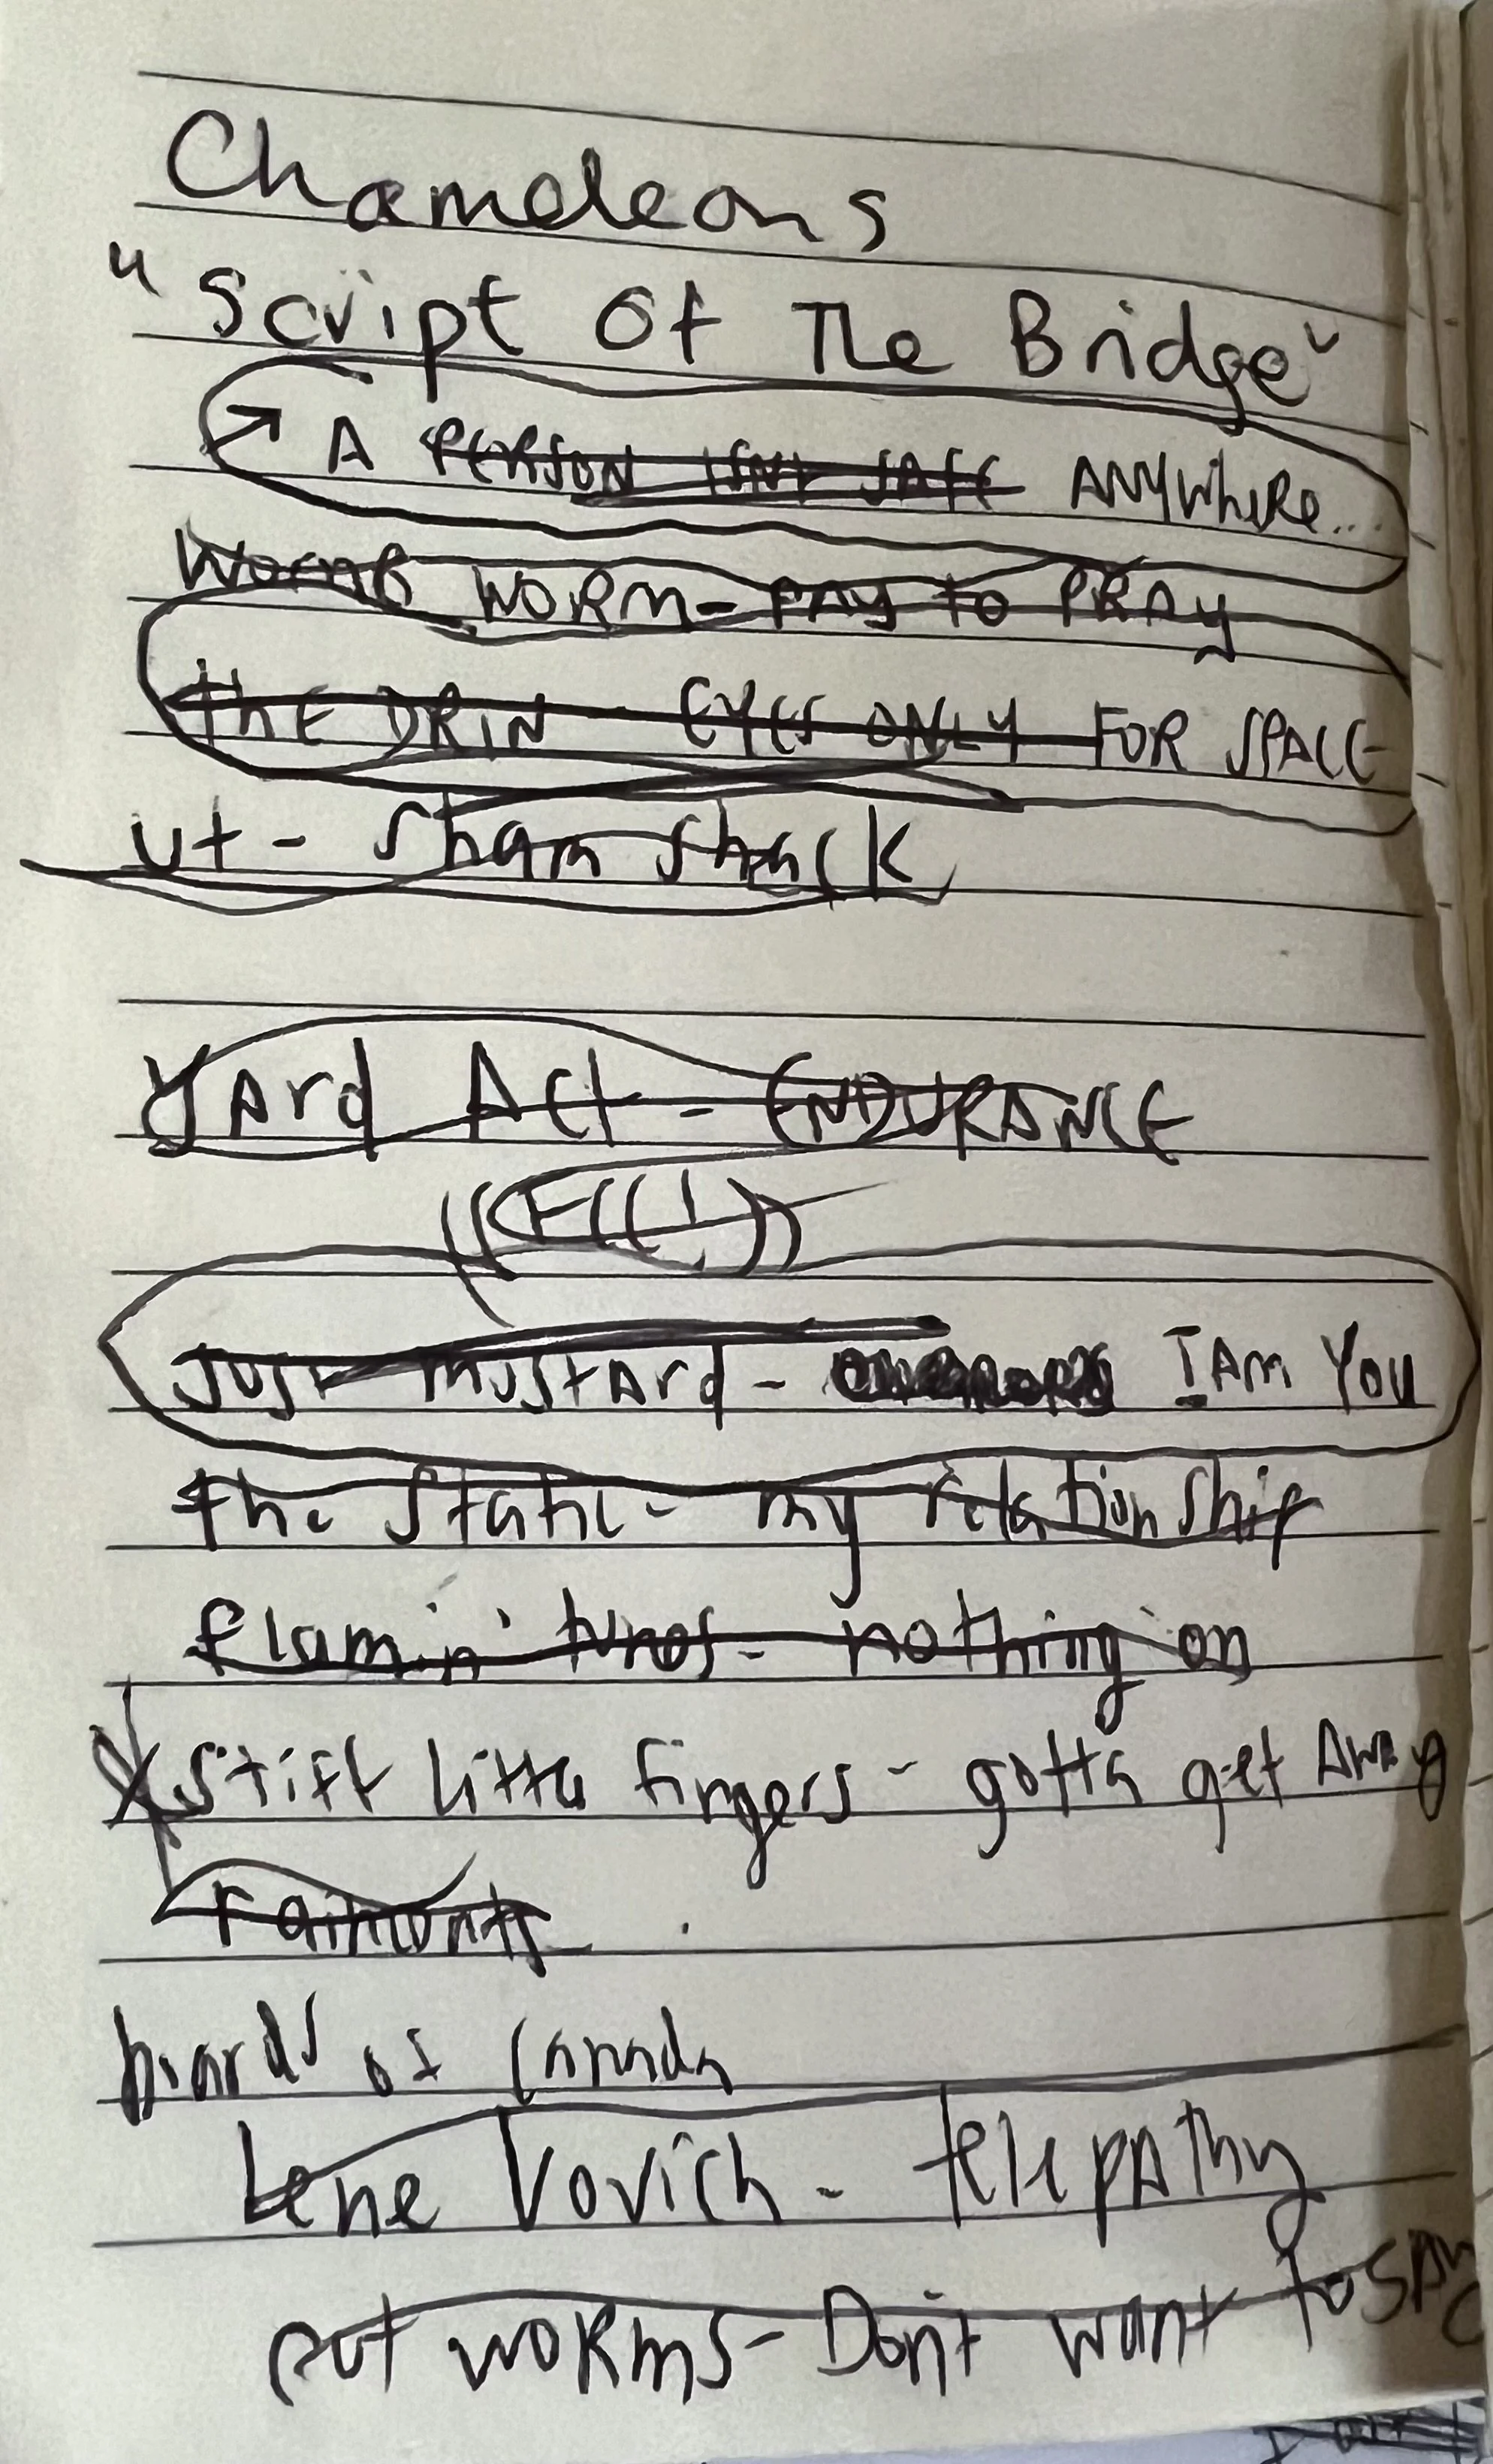 Chameleons
"Script Of The Bridge"
A PERSON ISNT SAFE ANYWhERe...
WORM - PAY to PRAy
thE DRIN - EYES ONLY FOR SPACE
Ut - Sham Shack
YArd Act - ENDURANCE
Just mustard - I Am You
the Static - my relationship
flamin' tunes - nothing on
Stiff Little fingers - gotta get AwAy
boards of Canada
Lene Lovich - telepAthy
cut woRms - Don't want to SAy